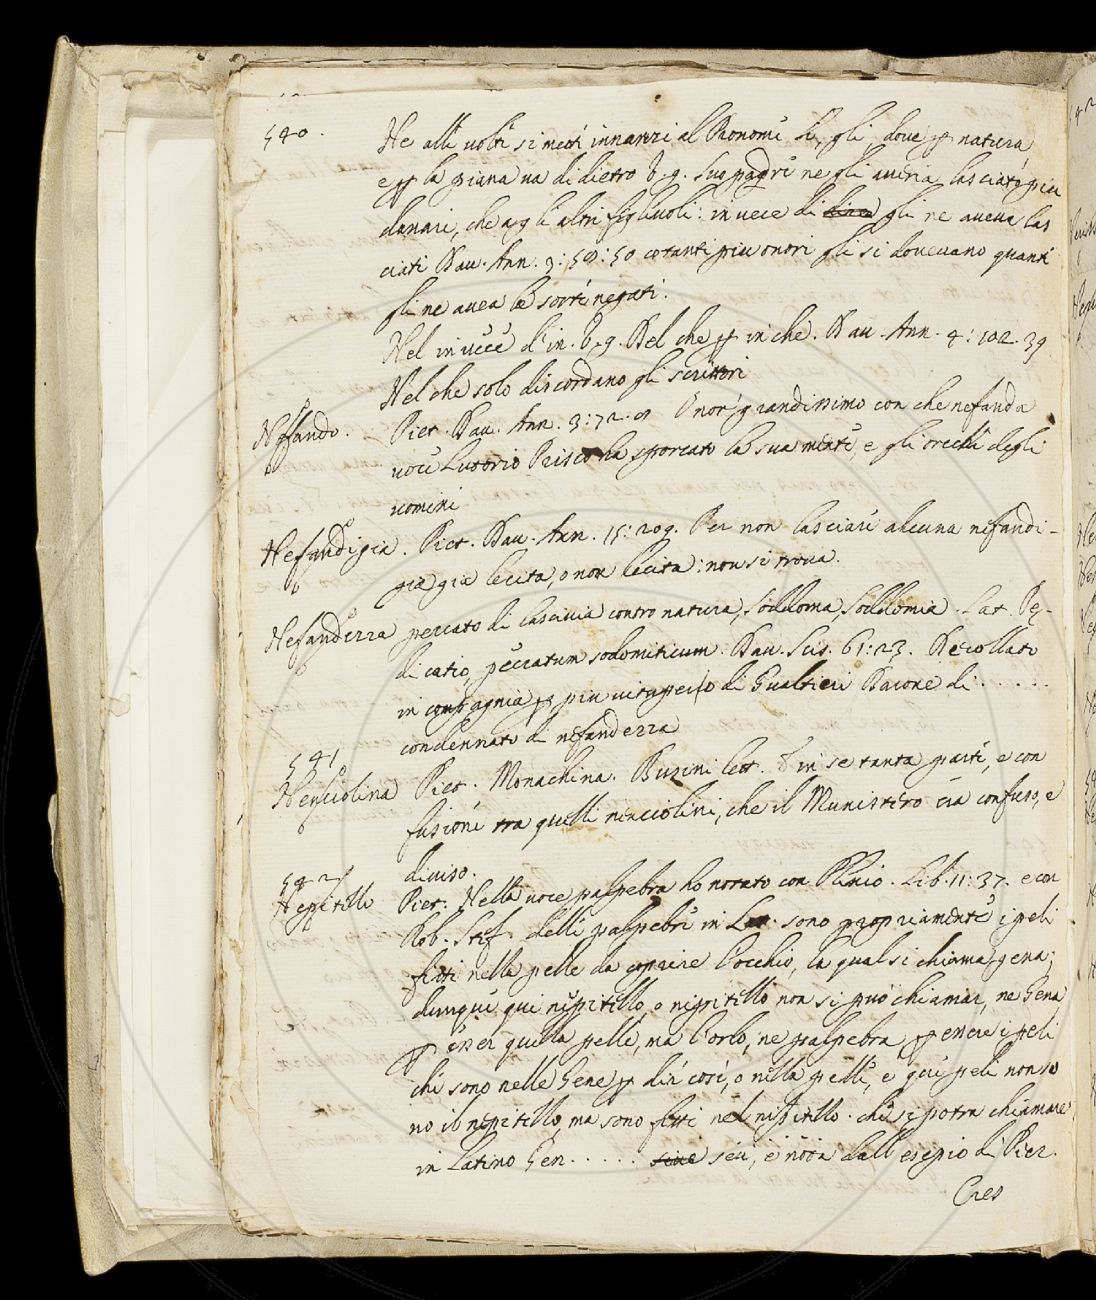 540. Ne alle volte si mette innanzi al Pronome li, gli dove p natura
e p la piana va di dietro v.g. suo padre ne gli avria lasciato piu
danari, che agli altri figliuoli: in vece di gli ne aveva las
ciati Dav. Ann. 3: 59: 50 cotanti piu onori gli si dovevano quanti
gli ne avea la sorte negati.
Nel in vece d'in. v.g. Nel che p in che. Dav. Ann. 4: 102. 39
Nel che solo discordano gli scrittori
Nefando. Piet. Dav. Ann. 3: 72. con che nefanda
voce Lutorio Prisco ha sporcato la sua mente, e gli orecchi degli
uomini
Nefandigia. Piet. Dav. Ann. 15: 209. Per non lasciare alcuna nefandi-
gia gia lecita, o non lecita: non si trova.
Nefandezza peccato di lascivia contro natura, soddoma, soddomia. Lat. Pę-
dicatio, peccatum sodomiticum. Dav. Scis. 61: 23. Decollato
in compagnia p piu vituperio di Gualtieri Barone di . . . . . .
condennato di nefandezza
541
Nenciolina Piet. Monachina. Buzini lett. in se tanta parte, e con
fusione tra quelli nenciolini, che il Munistero era confuso, e
diviso.
542
Neppitello Piet. Nella voce palpebra ho notato con Plinio. Lib. 11: 37. e con
Rob. Stef. delle palpebre in Lat. sono propriamente i peli
fitti nella pelle da coprire l'occhio, la qual si chiama gena;
dunque qui nepitello, o nipitello non si può chiamar, ne Gena
p esser quella pelle, ma l'orlo, ne palpebra p essere i peli
che sono nelle Gene p dir cosi, o nella pelle, e quei peli non so
no il nepitello, ma sono fitti nel nipitello. che si potra chiamare
in Latino Gen . . . . . . sive seu, è nota dall'esepio di Pier.
Cres